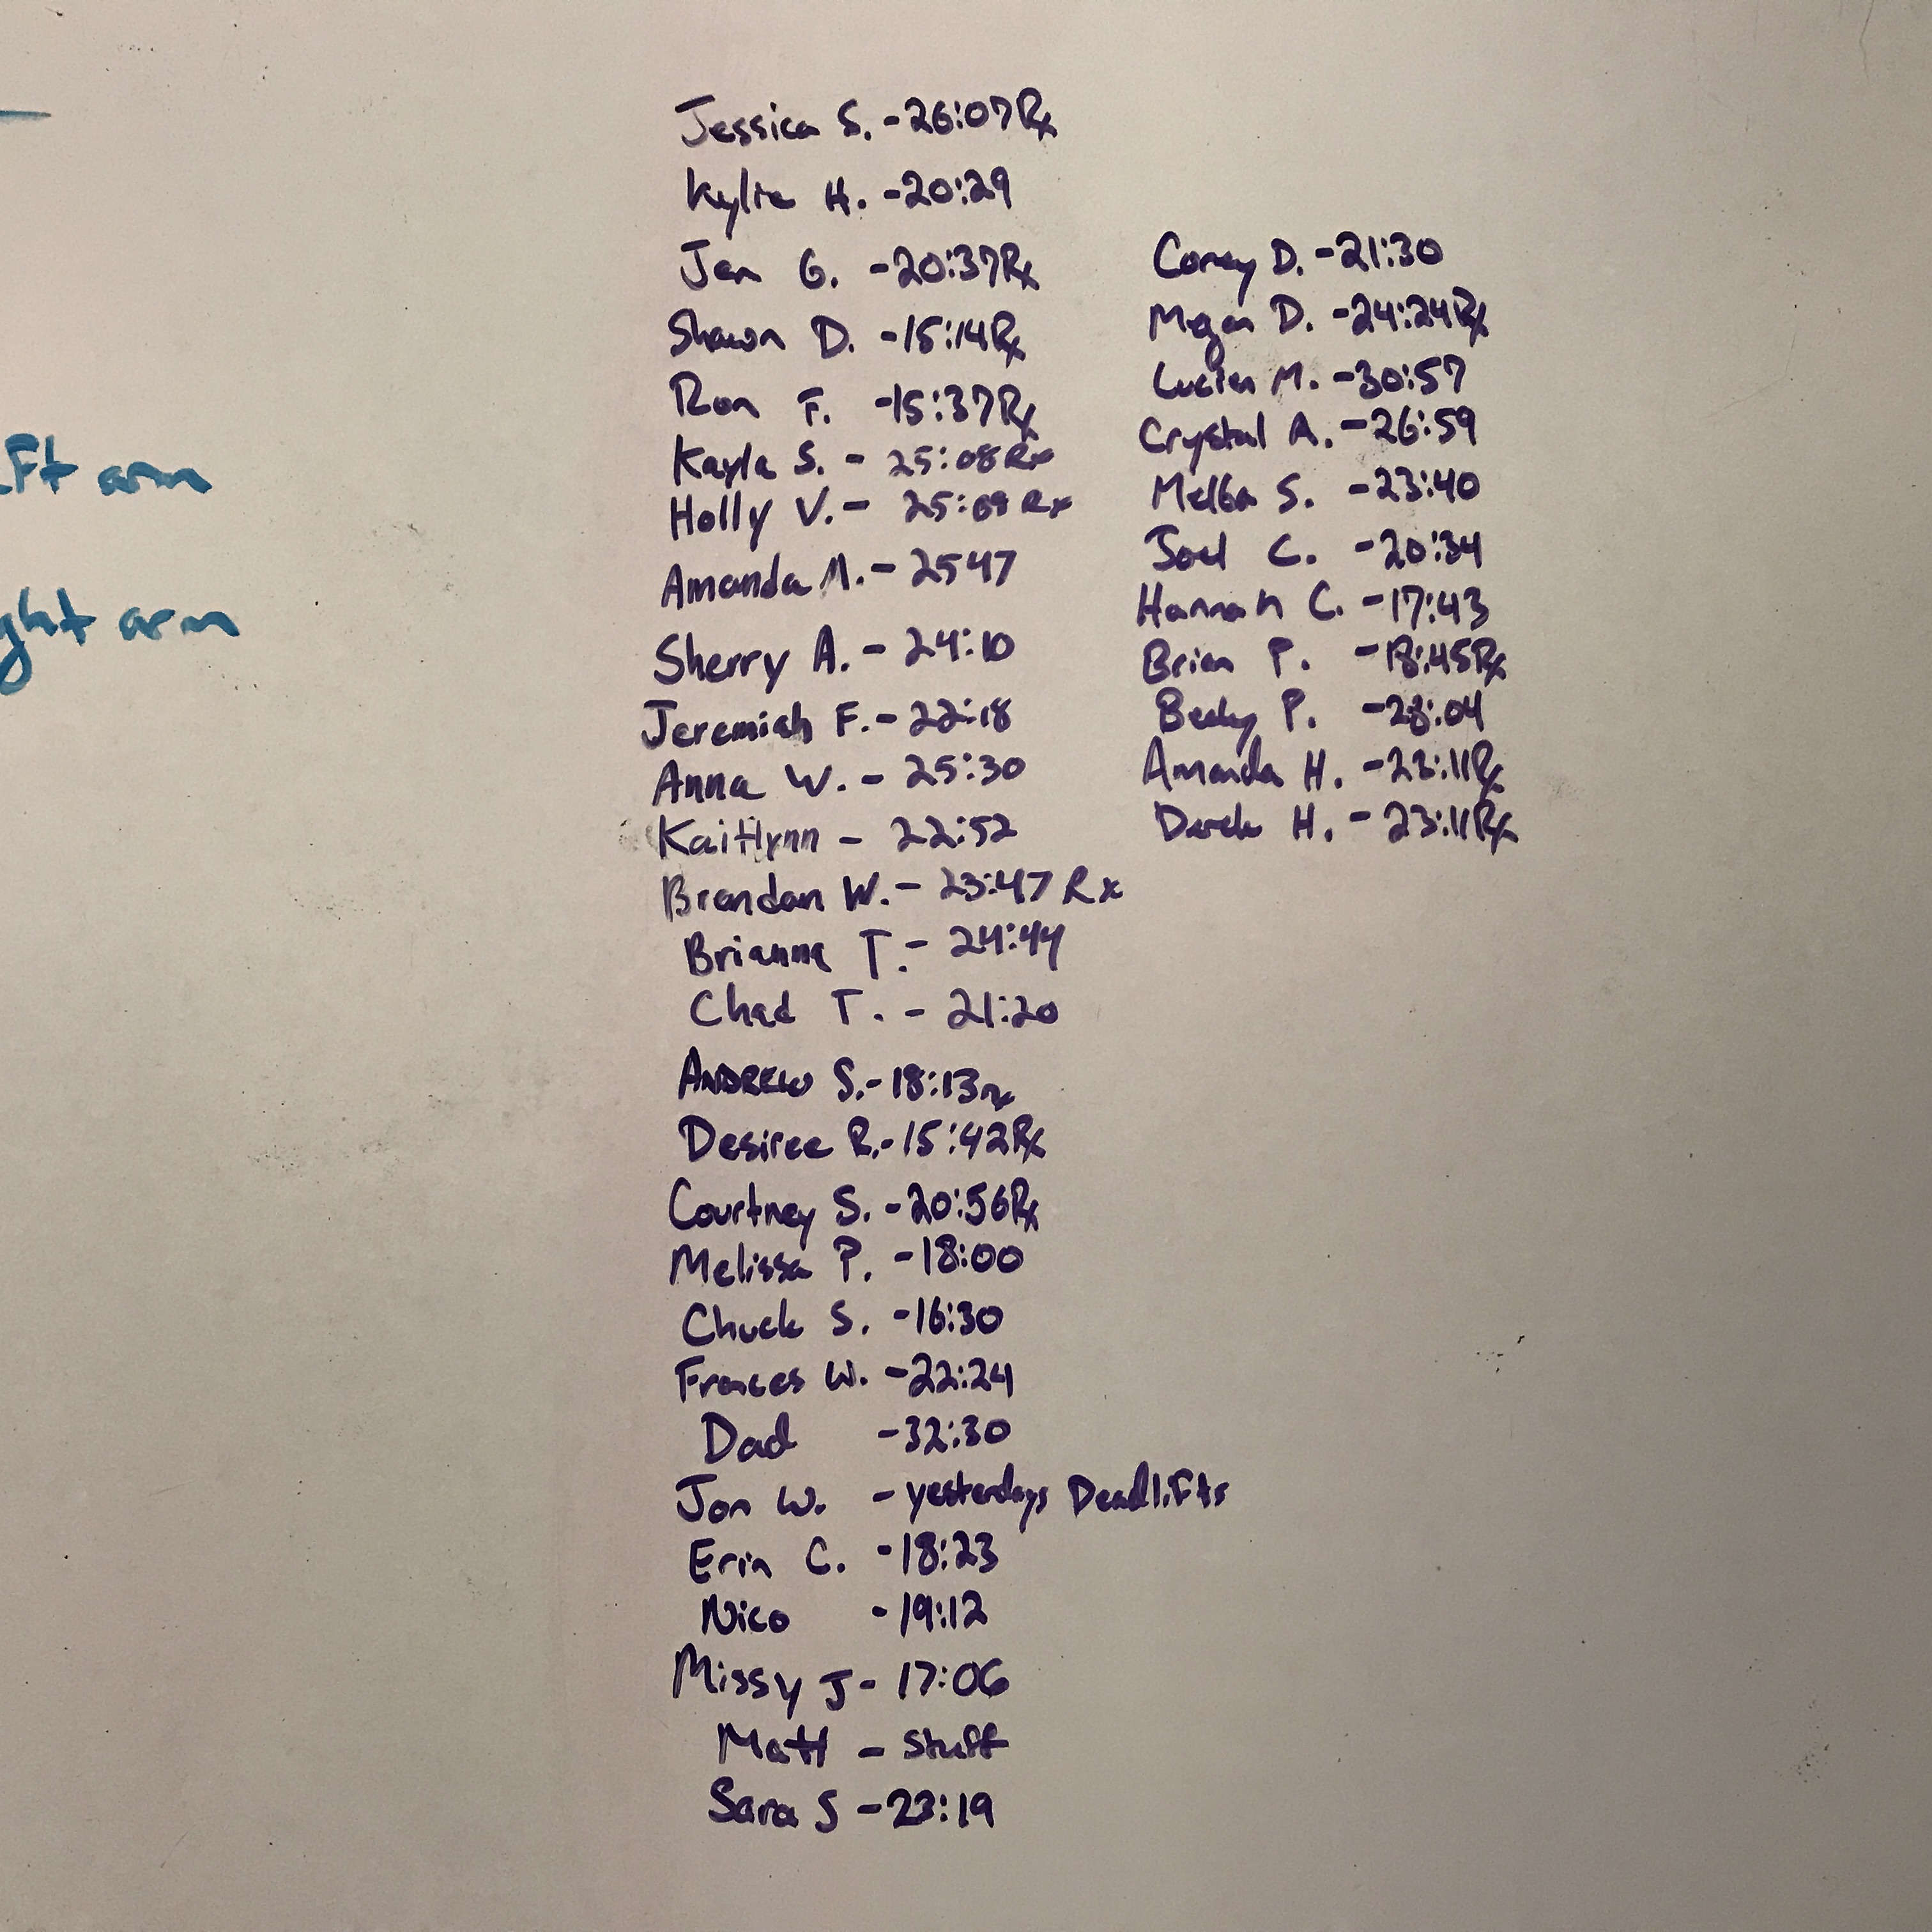 Ft arm
ght arm
Jessica S. -26:07Rx
Kylie H. -20:29
Jen G. -20:37Rx
Shawn D. -15:14Rx
Ron F. -15:37Rx
Kayla S. - 25:08Rx
Holly V. - 25:09 Rx
Amanda M. - 2547
Sherry A. - 24:10
Jeremiah F. - 22:18
Anna W. - 25:30
Kaitlynn - 22:52
Brendan W. - 23:47 Rx
Brianna T. - 24:44
Chad T. - 21:20
ANDREW S. - 18:13rx
Desiree R. - 15:42Rx
Courtney S. -20:56Rx
Melissa P. -18:00
Chuck S. -16:30
Frances W. -22:24
Dad -32:30
Jon W. - yesterdays Deadlifts
Erin C. -18:23
Nico -19:12
Missy J - 17:06
Matt - Stuff
Sara S -23:19
Corey D. -21:30
Megan D. -24:24Rx
M. -30:57
Crystal A. -26:59
Melba S. -23:40
Joel C. -20:34
Hannah C. -17:43
Brian P. -18:45Rx
Becky P. :04
Amanda H. -23:11Rx
Derek H. - 23:11Rx